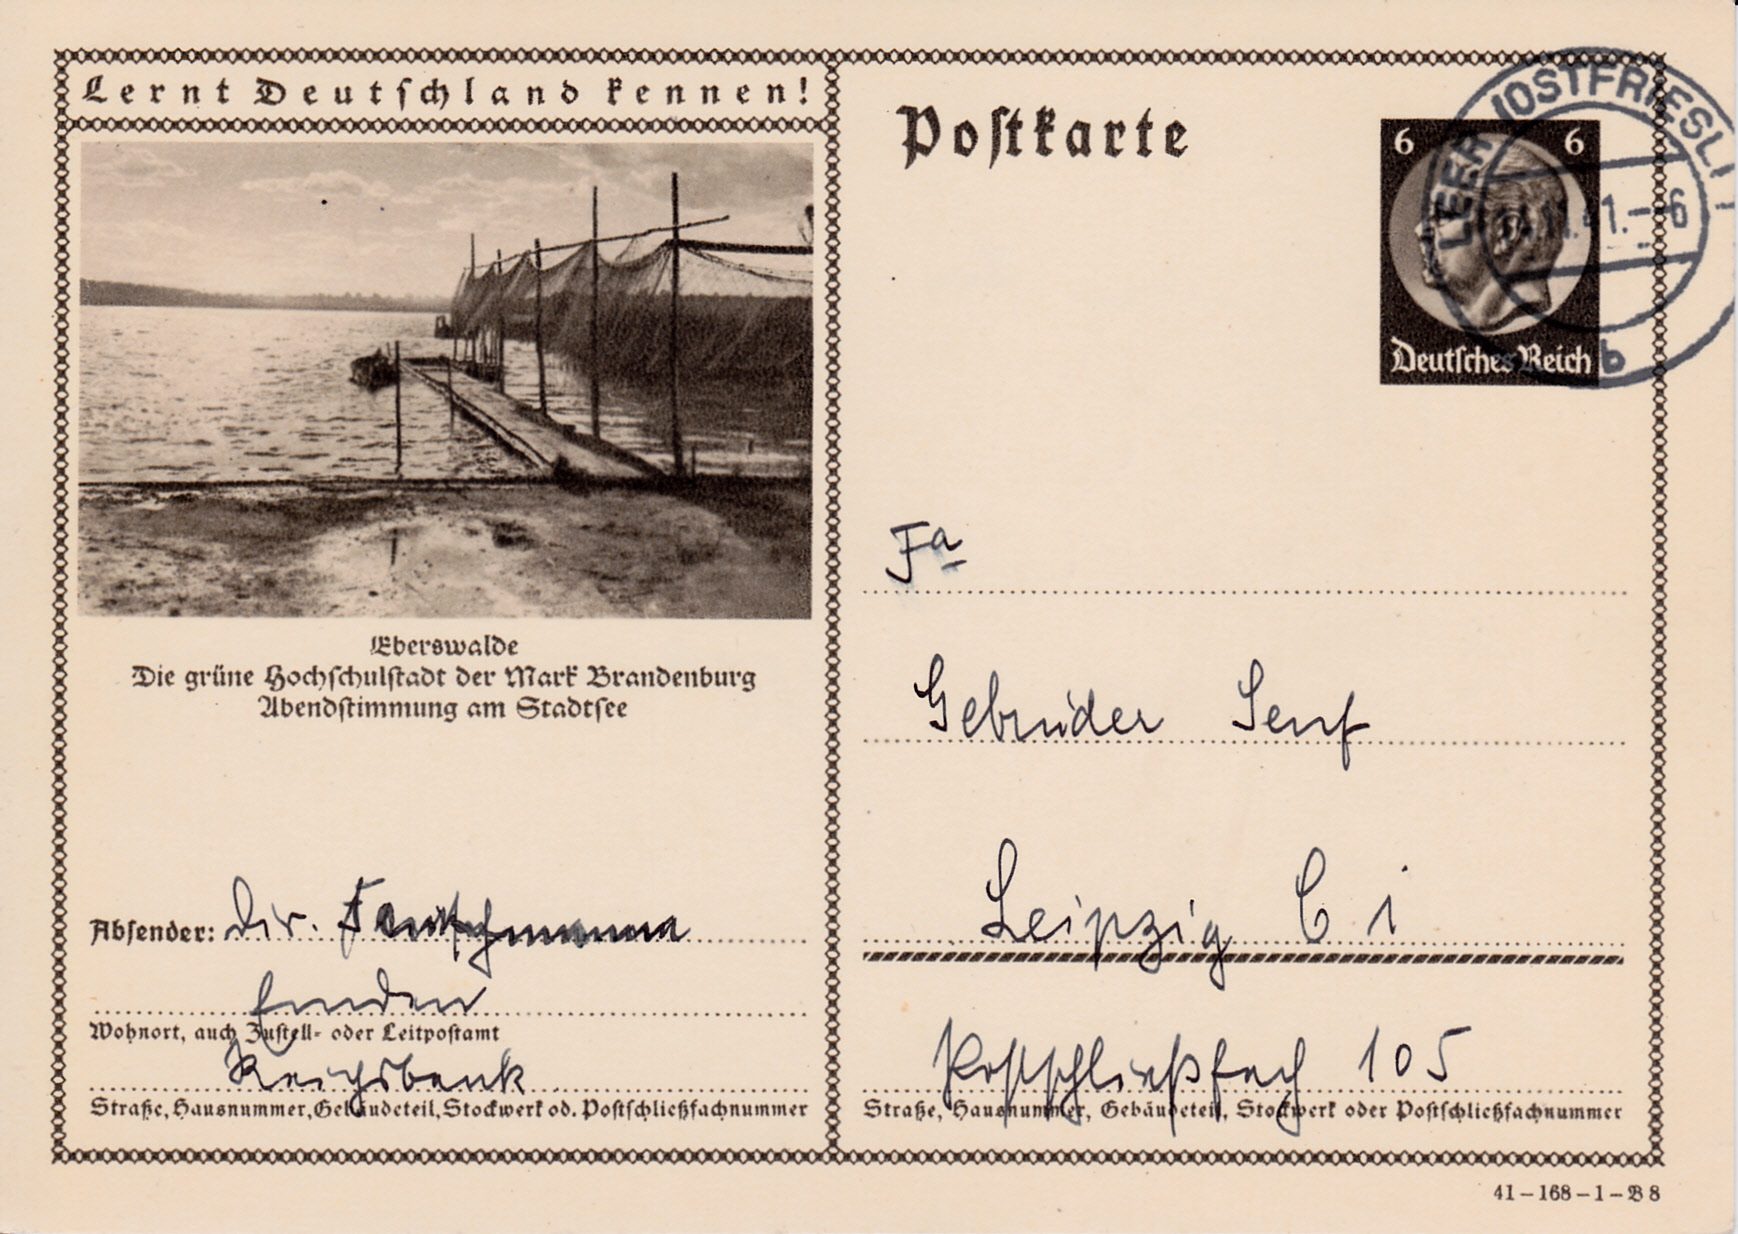 Lernt Deutschland kennen!
Eberswalde
Die grüne Hochschulstadt der Mark Brandenburg
Abendstimmung am Stadtsee
Absender: Dir.
Emden
Wohnort, auch Zustell- oder Leitpostamt
Reichsbank
Straße, Hausnummer, Gebäudeteil, Stockwerk od. Postschließfachnummer
Postkarte
6 6
Deutsches Reich
LEER (OSTFRIESL)
11.41.-6
b
Fa
Gebrüder Senf
Leipzig C 1
Postschließfach 105
Straße, Hausnummer, Gebäudeteil, Stockwerk oder Postschließfachnummer
41-168-1-B 8